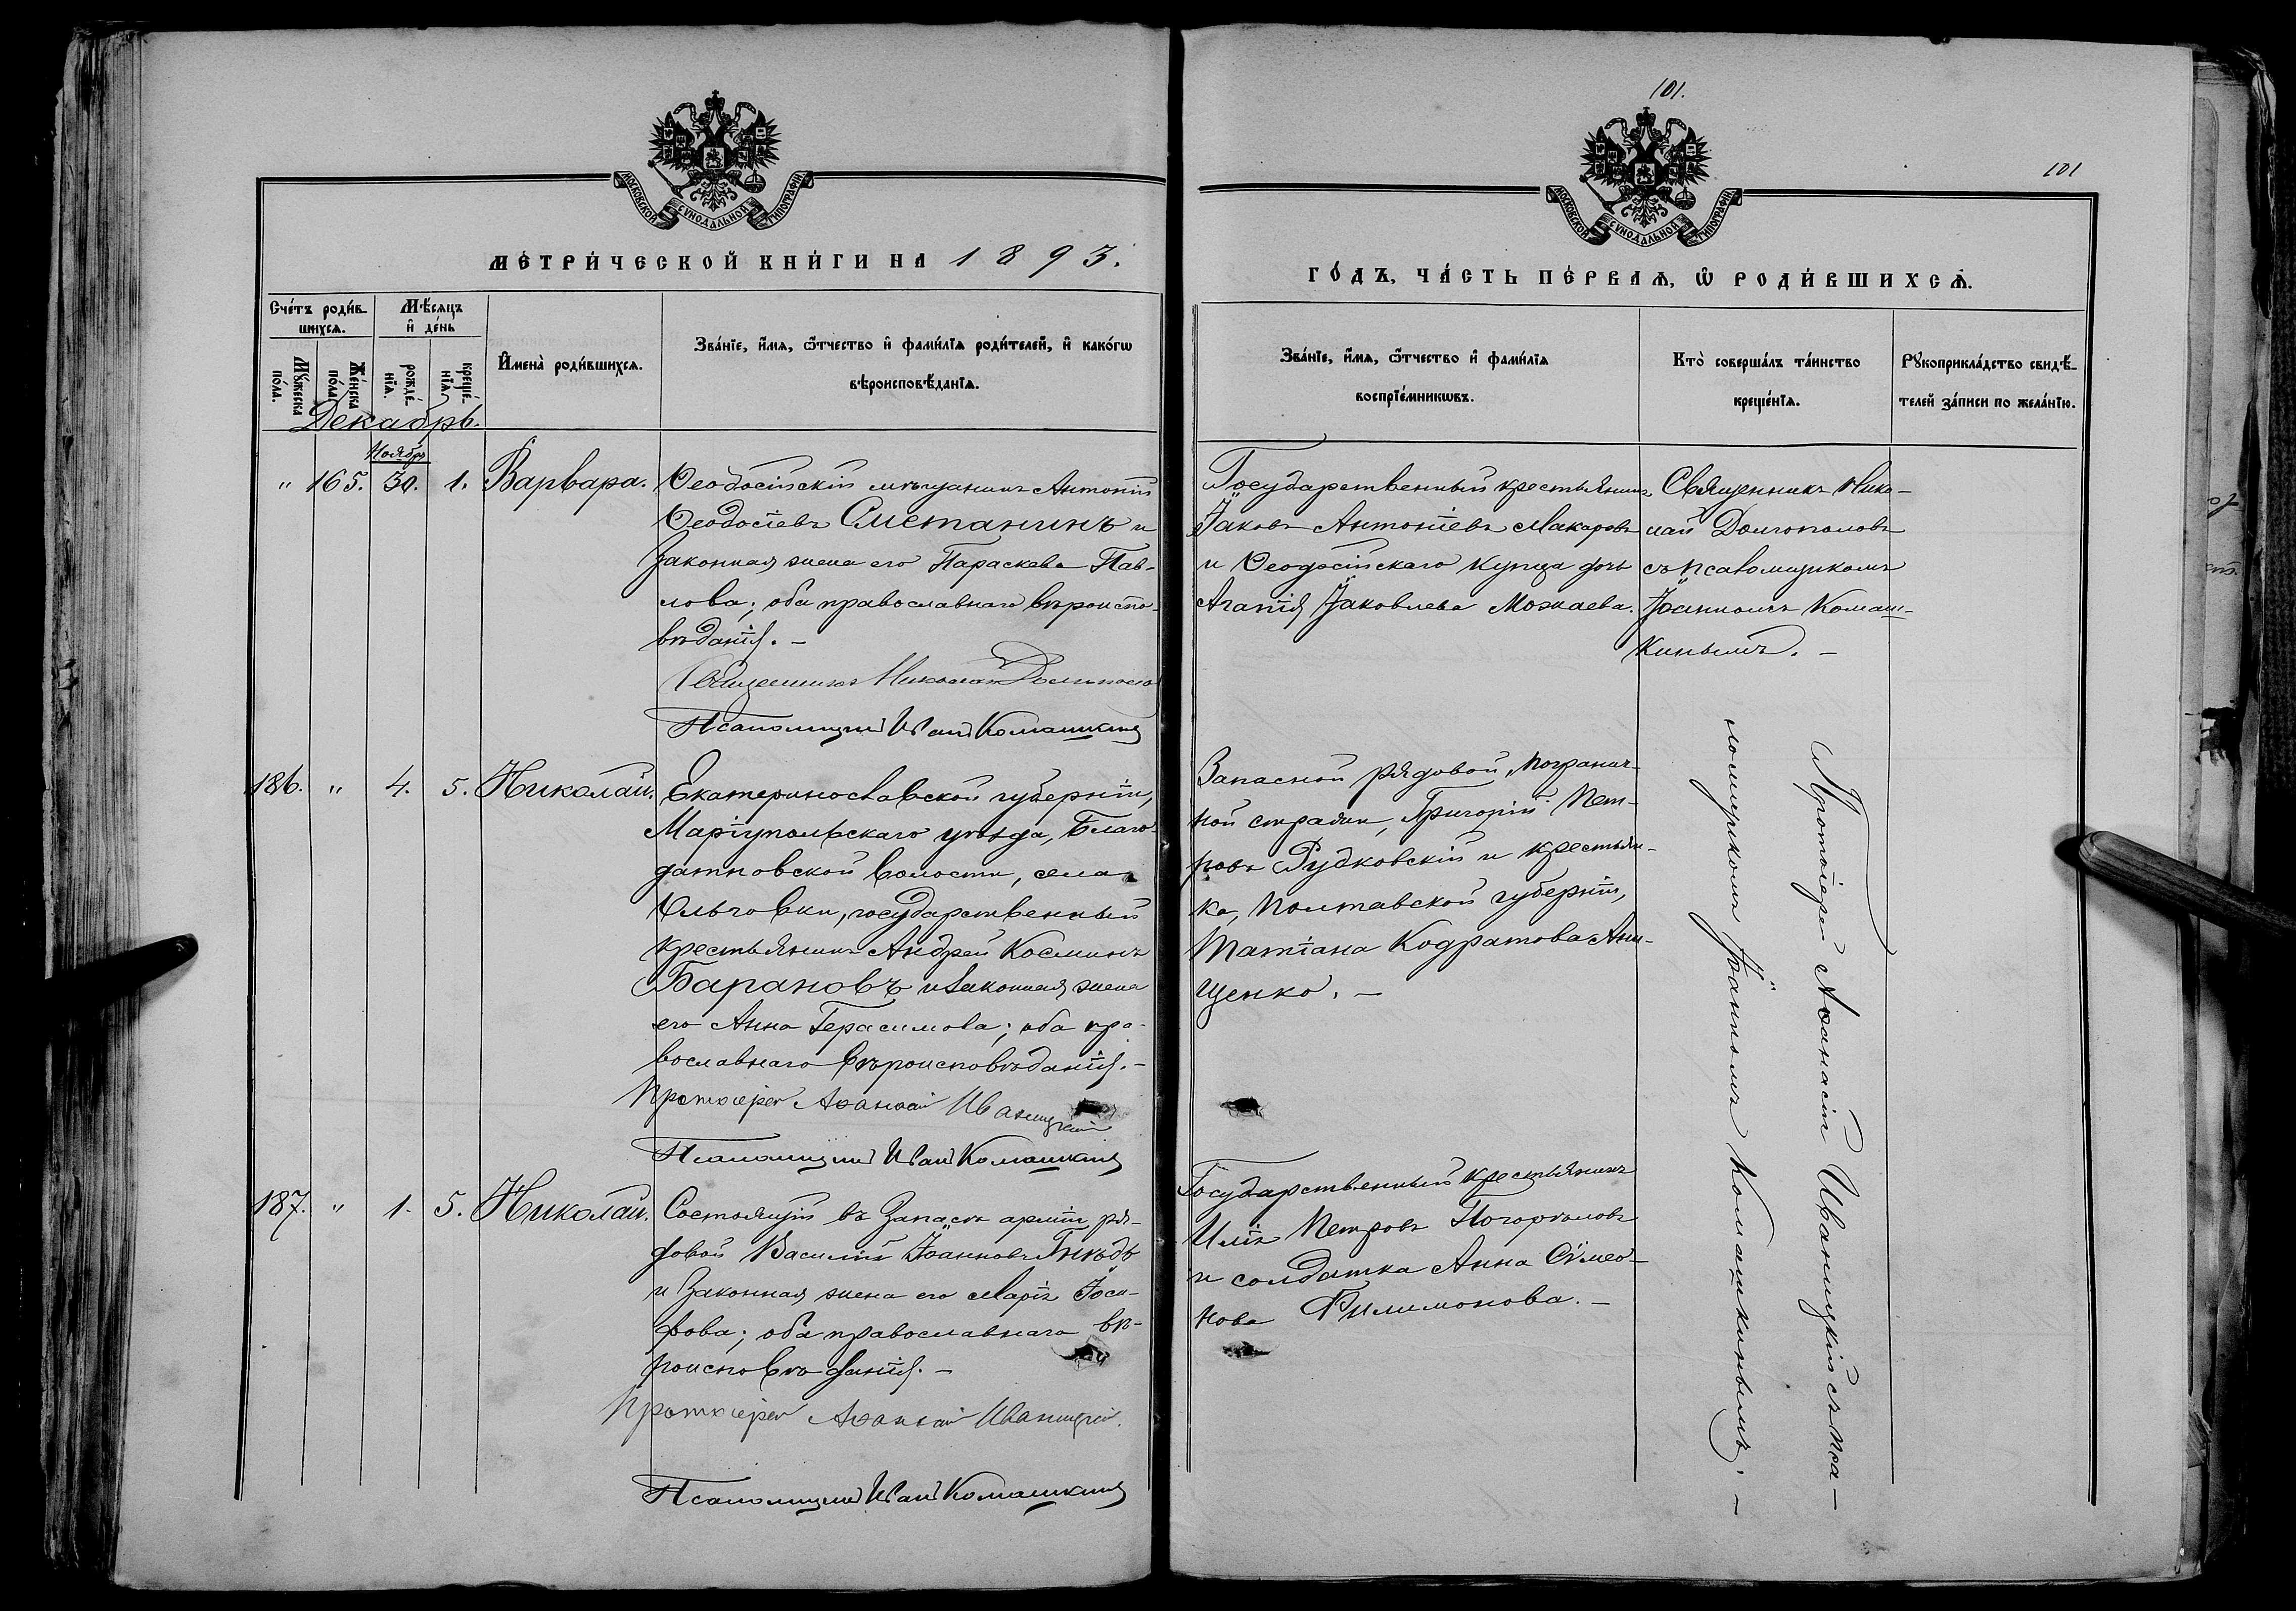 101.
101
МОСКОВСКОЙ СѴНОДАЛЬНОЙ ТИПОГРАФІИ
МОСКОВСКОЙ СѴНОДАЛЬНОЙ ТИПОГРАФІИ
МЕТРИ́ЧЕСКОЙ КНИ́ГИ НА 1893.
ГО́ДЪ, ЧА́СТЬ ПЕ́РВАѦ, Ѿ РОДИ́ВШИХСѦ.
Сче́тъ роди́в-
шихсѧ.
Мѣ́сѧцъ
и҆ де́нь
Мꙋ́жеска
по́ла.
Же́нска
по́ла.
рожде́-
нїѧ.
креще́-
нїѧ.
И҆мена̀ роди́вшихсѧ.
Зва́нїе, и҆́мѧ, ѻ҆́тчество и҆ фами́лїѧ роди́телей, и҆ како́гѡ
вѣроисповѣ́данїѧ.
Зва́нїе, и҆́мѧ, ѻ҆́тчество и҆ фами́лїѧ
воспрїе́мникѡвъ.
Кто̀ соверша́лъ та́инство
креще́нїѧ.
Рꙋкоприкла́дство свидѣ́-
телей за́писи по жела́нїю.
Декабрь.
Ноябрь
" 165. 30. 1. Варвара.
Ѳеодосійскій мѣщанинъ Антоній
Ѳеодосіевъ Сметанинъ и
законная жена его Параскева Пав-
лова; оба православнаго вѣроиспо-
вѣданія. –
Священникъ Николай Долгополо
Псаломщикъ Иванъ Комашкинъ
Государственный крестьянинъ
Іаковъ Антоніевъ Макаровъ
и Ѳеодосійскаго купца дочь
Агапія Іаковлева Можаева.
Священникъ Нико-
лай Долгополовъ
съ псаломщикомъ
Іоанномъ Комаш-
кинымъ. –
186. " 4. 5. Николай.
Екатеринославской губерніи,
Маріупольскаго уѣзда, Благо-
датновской волости, села
Ольговки, государственный
крестьянинъ Андрей Косминъ
Барановъ и законная жена
его Анна Герасимова; оба пра-
вославнаго вѣроисповѣданія. –
Протоіерей Аѳанасій Иваницкій
Псаломщикъ Иванъ Комашкинъ
Запасной рядовой, погранич-
ной стражи, Григорій Пет-
ровъ Рудковскій и крестьян-
ка, Полтавской губерніи,
Татіана Кодратова Они-
щенко. –
187. " 1. 5. Николай.
Состоящій въ запасѣ арміи, ря-
довой Василій Іоанновъ Гнѣдъ
и законная жена его Марія Іоси-
фова; оба православнаго вѣ-
роисповѣданія. –
Протоіерей Аѳанасій Иваницкій.
Псаломщикъ Иванъ Комашкинъ
Государственный крестьянинъ
Илія Петровъ Погорѣловъ
и солдатка Анна Сѵмео-
нова Филимонова. –
Протоіерей Аѳанасій Иваницкій съ пса-
ломщикомъ Іоанномъ Комашкинымъ. –